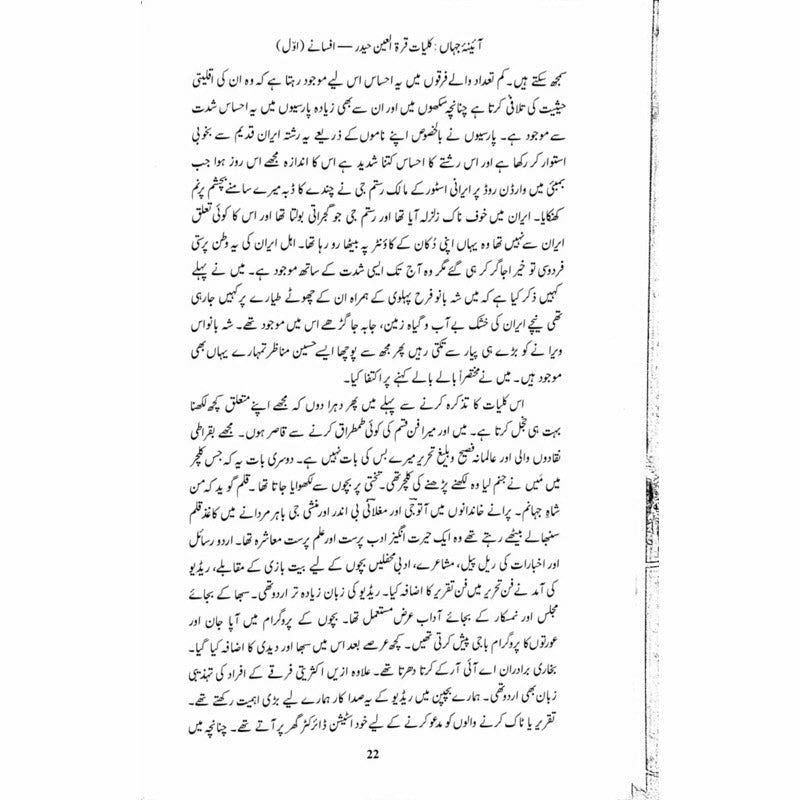 آئینۂ جہاں: کلیات قرۃ العین حیدر — افسانے (اوّل)
سمجھ سکتے ہیں۔ کم تعداد والے فرقوں میں یہ احساس اس لیے موجود رہتا ہے کہ وہ ان کی اقلیتی
حیثیت کی تلافی کرتا ہے چنانچہ سکھوں میں اور ان سے بھی زیادہ پارسیوں میں یہ احساس شدت
سے موجود ہے۔ پارسیوں نے بالخصوص اپنے ناموں کے ذریعے یہ رشتہ ایران قدیم سے بخوبی
استوار کر رکھا ہے اور اس رشتے کا احساس کتنا شدید ہے اس کا اندازہ مجھے اس روز ہوا جب
بمبئی میں وارڈن روڈ پر ایرانی اسٹور کے مالک رستم جی نے چندے کا ڈبہ میرے سامنے بچشم پرنم
کھنکایا۔ ایران میں خوف ناک زلزلہ آیا تھا اور رستم جی جو گجراتی بولتا تھا اور اس کا کوئی تعلق
ایران سے نہیں تھا وہ یہاں اپنی دُکان کے کاؤنٹر پہ بیٹھا رو رہا تھا۔ اہل ایران کی یہ وطن پرستی
فردوسی تو خیر اجاگر کر ہی گئے مگر وہ آج تک ایسی شدت کے ساتھ موجود ہے۔ میں نے پہلے
کہیں ذکر کیا ہے کہ میں شہ بانو فرح پہلوی کے ہمراہ ان کے چھوٹے طیارے پر کہیں جارہی
تھی نیچے ایران کی خشک بے آب و گیاہ زمین، جابہ جا گڑھے اس میں موجود تھے۔ شہ بانو اس
ویرانے کو بڑے ہی پیار سے تکتی رہیں پھر مجھ سے پوچھا ایسے حسین مناظر تمہارے یہاں بھی
موجود ہیں۔ میں نے مختصراً بالے بالے کہنے پر اکتفا کیا۔
اس کلیات کا تذکرہ کرنے سے پہلے میں پھر دہرا دوں کہ مجھے اپنے متعلق کچھ لکھنا
بہت ہی خجل کرتا ہے۔ میں اور میرا فن قسم کی کوئی طمطراق کرنے سے قاصر ہوں۔ مجھے بقراطی
نقادوں والی اور عالمانہ فصیح و بلیغ تحریر میرے بس کی بات نہیں ہے۔ دوسری بات یہ کہ جس کلچر
میں مَیں نے جنم لیا وہ لکھنے پڑھنے کی کلچر تھی۔ تختی پر بچوں سے لکھوایا جاتا تھا۔ قلم گوید کہ من
شاہِ جہانم۔ پرانے خاندانوں میں آتوجی اور مغلانی بی اندر اور منشی جی باہر مردانے میں کاغذ قلم
سنبھالے بیٹھے رہتے تھے وہ ایک حیرت انگیز ادب پرست اور علم پرست معاشرہ تھا۔ اردو رسائل
اور اخبارات کی ریل پیل، مشاعرے، ادبی محفلیں بچوں کے لیے بیت بازی کے مقابلے، ریڈیو
کی آمد نے فن تحریر میں فن تقریر کا اضافہ کیا۔ ریڈیو کی زبان زیادہ تر اردو تھی۔ سبھا کے بجائے
مجلس اور نمسکار کے بجائے آداب عرض مستعمل تھا۔ بچوں کے پروگرام میں آپا جان اور
عورتوں کا پروگرام باجی پیش کرتی تھیں۔ کچھ عرصے بعد اس میں سبھا اور دیدی کا اضافہ کیا گیا۔
بخاری برادران اے آئی آر کے کرتا دھرتا تھے۔ علاوہ ازیں اکثریتی فرقے کے افراد کی تہذیبی
زبان بھی اردو تھی۔ ہمارے بچپن میں ریڈیو کے یہ صدا کار ہمارے لیے بڑی اہمیت رکھتے تھے۔
تقریر یا ٹاک کرنے والوں کو مدعو کرنے کے لیے خود اسٹیشن ڈائرکٹر گھر پر آتے تھے۔ چنانچہ میں
22